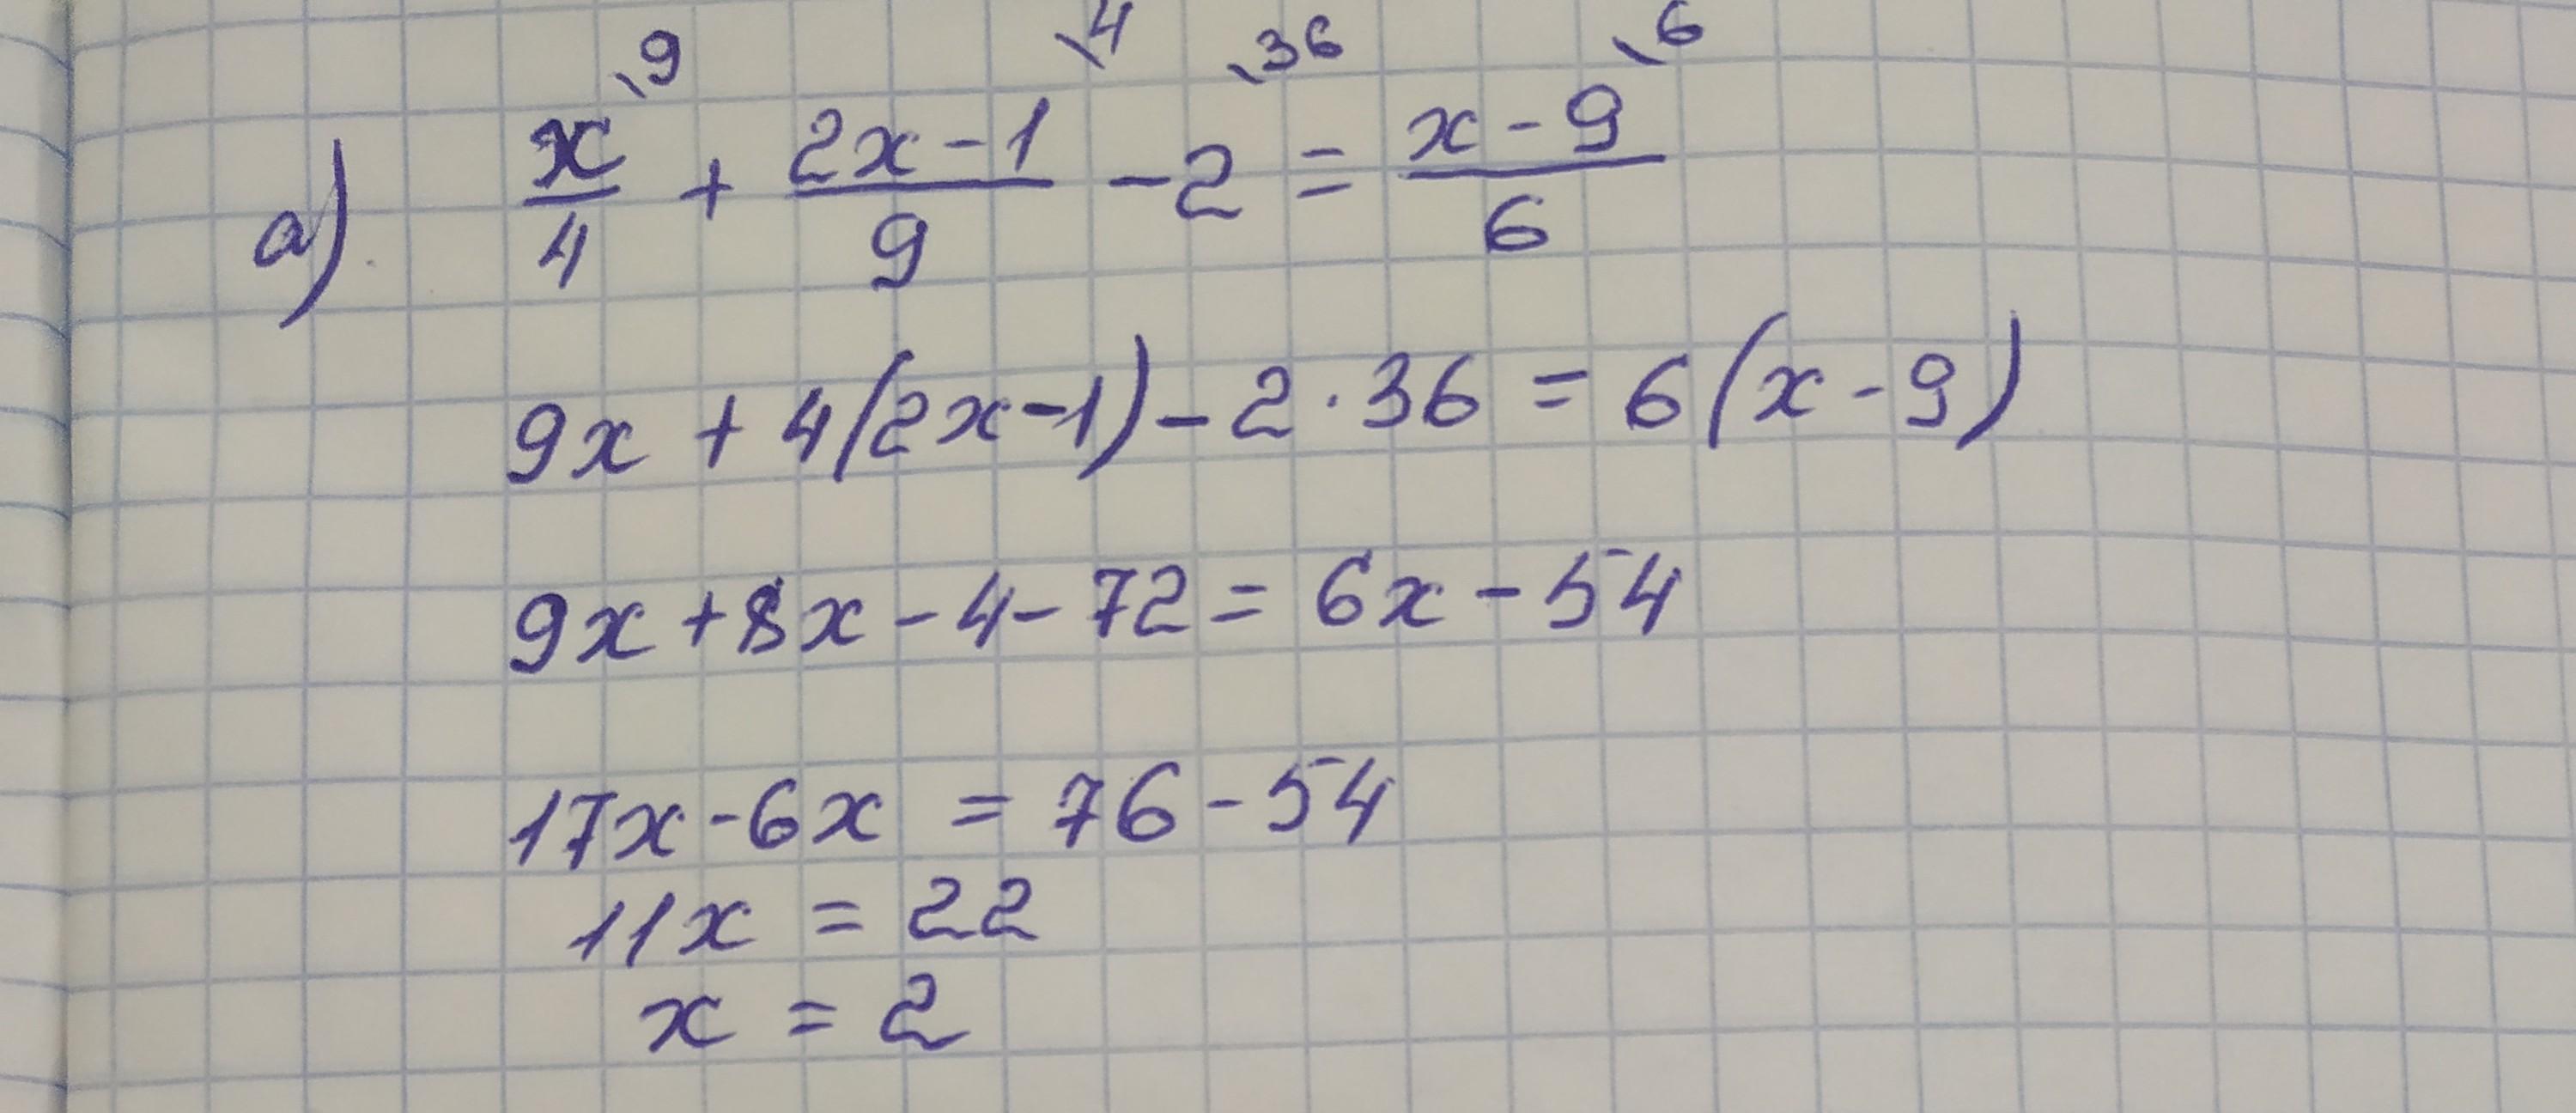 \9 \4 \36 \6
а) x/4 + (2x-1)/9 - 2 = (x-9)/6
9x + 4(2x-1) - 2·36 = 6(x-9)
9x + 8x - 4 - 72 = 6x - 54
17x - 6x = 76 - 54
11x = 22
x = 2